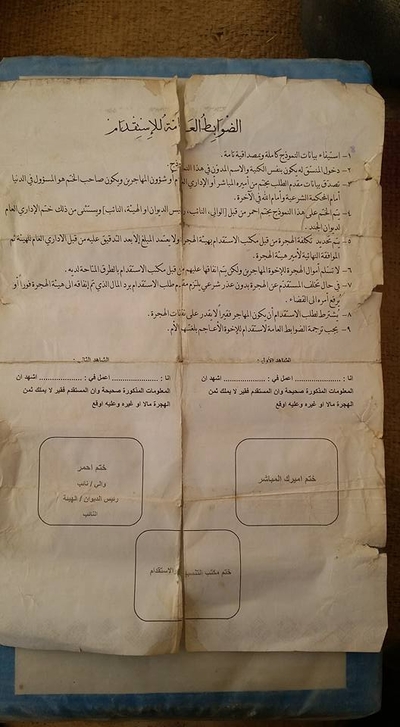 الضوابط العامة للاستقدام
١- استيفاء بيانات النموذج كاملة وبمصداقية تامة .
٢- دخول المنسق له يكون بنفس الكنية والاسم المدون في هذا النموذج.
٣- تصدق بيانات مقدم الطلب بختم من أميره المباشر أو الإداري العام أو شؤون المهاجرين ويكون صاحب الختم هو المسؤول في الدنيا
أمام المحكمة الشرعية وأمام الله في الآخرة.
٤- يتم الختم على هذا النموذج بختم أحمر من قبل [الوالي، النائب، رئيس الديوان او الهيئة، النائب] ويستثنى من ذلك ختم الإداري العام
لديوان الجند.
٥- يتم تحديد تكلفة الهجرة من قبل مكتب الاستقدام بهيئة الهجرة ولا يعتمد المبلغ إلا بعد التدقيق عليه من قبل الاداري العام للهيئة ثم
الموافقة النهائية لأمير هيئة الهجرة.
٦- لا تستلم أموال الهجرة للإخوة المهاجرين ولكن يتم انفاقها عليهم من قبل مكتب الاستقدام بالطرق المتاحة لديه.
٧- في حال تخلف المستقدم عن الهجرة بدون عذر شرعي يلتزم مقدم طلب الاستقدام برد المال الذي تم إنفاقه الى هيئة الهجرة فوراً أو
يرفع أمره الى القضاء.
٨- يشترط لطلب الاستقدام أن يكون المهاجر فقيراً لا يقدر على نفقات الهجرة.
٩- يجب ترجمة الضوابط العامة لاستقدام للإخوة الأعاجم بلغتهم الأم.
الشاهد الأول: الشاهد الثاني:
انا : .................. اعمل في : .................. اشهد ان
المعلومات المذكورة صحيحة وان المستقدم فقير لا يملك ثمن
الهجرة مالا او غيره وعليه اوقع
انا : .................. اعمل في : .................. اشهد ان
المعلومات المذكورة صحيحة وان المستقدم فقير لا يملك ثمن
الهجرة مالا او غيره وعليه اوقع
ختم اميرك المباشر
ختم احمر
والي / نائب
رئيس الديوان / الهيئة
النائب
ختم مكتب الاستقدام